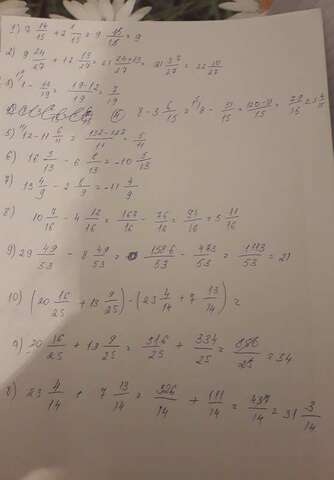 1) 7 14/15 + 2 1/15 = 9 15/15 = 9
2) 9 24/27 + 12 15/27 = 21 24+15/27 = 21 37/27 = 22 10/27
1 - 12/19 = 19-12/19 = 7/19
8 - 3 6/15 = 8 - 51/15 = 120-51/15 =
5) 12 - 11 6/11 = 132-127/11 = 5/11
6) 16 5/13 - 6 = 10 5/13
7) 13 4/9 - 2 = 11 4/9
8) 10 7/16 - 4 12/16 = 167/16 - 76/16 = 91/16 = 5 11/16
9) 29 49/53 - 8 49/53 = 1586/53 - 473/53 = 1113/53 = 21
10) (20 16/25 + 13 9/25) - (23 4/14 + 7 13/14) =
20 16/25 + 13 9/25 = 516/25 + 334/25 = 850/25 = 34
23 4/14 + 7 13/14 = 326/14 + 111/14 = 437/14 = 31 3/14